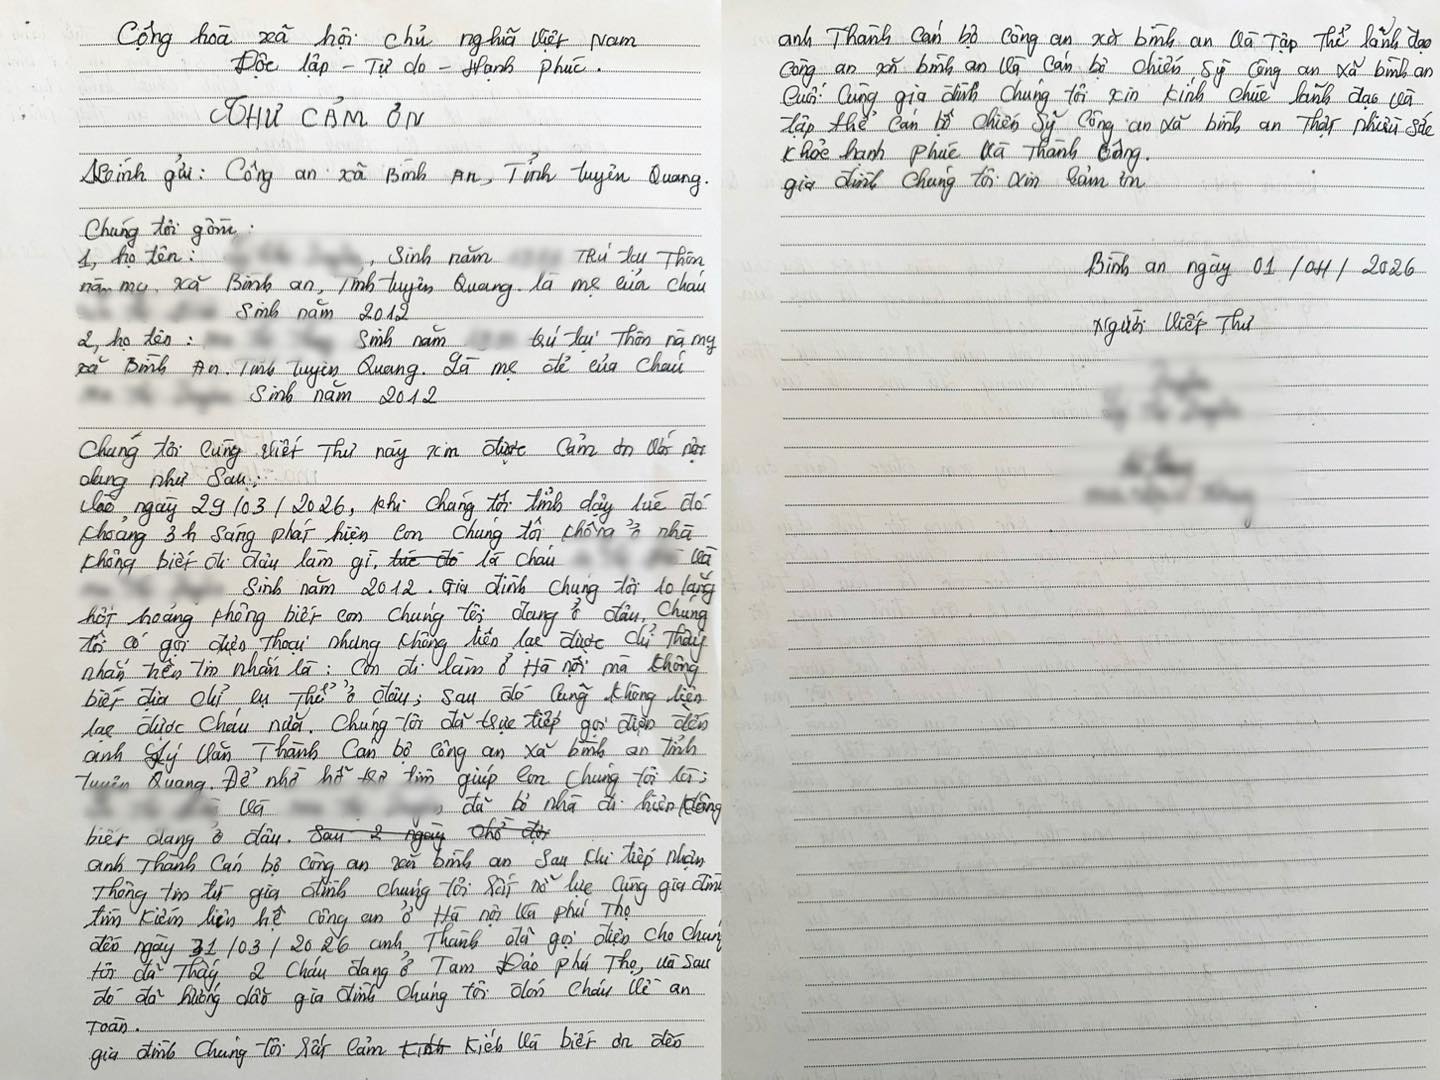 Cộng hoà xã hội chủ nghĩa Việt Nam
Độc lập - Tự do - Hạnh phúc.
THƯ CẢM ƠN
Kính gửi: Công an xã Bình An, Tỉnh tuyên Quang.
Chúng tôi gồm:
1, họ tên: , Sinh năm Trú tại Thôn
nà mạ, xã Bình an, Tỉnh tuyên Quang. là mẹ của cháu
Sinh năm 2012
2, họ tên: Sinh năm trú tại Thôn nà mạ
xã Bình An. Tỉnh tuyên Quang. Là mẹ đẻ của Cháu
Sinh năm 2012
Chúng tôi cùng viết Thư này xin được Cảm ơn với nội
dung như Sau:
Vào ngày 29/03/2026, khi chúng tôi tỉnh dậy lúc đó
khoảng 3h sáng phát hiện con chúng tôi không ở nhà
không biết đi đâu làm gì, tức đó là cháu và
Sinh năm 2012. Gia đình chúng tôi lo lắng
hốt hoảng không biết con chúng tôi đang ở đâu, Chúng
tôi có gọi điện Thoại nhưng không liên lạc được chỉ Thấy
nhắn tin nhắn là: Con đi làm ở Hà nội mà không
biết địa chỉ cụ Thể ở đâu; Sau đó cũng không liên
lạc được cháu nữa. Chúng tôi đã trực tiếp gọi điện đến
anh Lý Văn Thành Cán bộ công an xã bình an tỉnh
tuyên Quang. Để nhờ hỗ trợ tìm giúp con chúng tôi là;
và , đã bỏ nhà đi hiện không
biết đang ở đâu. Sau 2 ngày
anh Thành Cán bộ công an xã bình an Sau khi tiếp nhận
Thông tin từ gia đình chúng tôi rất nỗ lực Cùng gia đình
tìm kiếm liên hệ công an ở Hà nội và phú Thọ
đến ngày 31/03/2026 anh Thành đã gọi điện cho chúng
tôi đã Thấy 2 Cháu đang ở Tam Đảo phú Thọ, và sau
đó đã hướng dẫn gia đình chúng tôi đón cháu về an
Toàn.
gia đình Chúng tôi rất cảm kích và biết ơn đến
anh Thành Cán bộ Công an xã bình an và Tập Thể lãnh đạo
Công an xã bình an và Cán bộ chiến Sỹ Công an xã bình an
Cuối Cùng gia đình Chúng tôi xin kính chúc lãnh đạo và
tập thể Cán bộ chiến Sỹ Công an xã bình an Thật nhiều Sức
Khỏe hạnh phúc và Thành Công.
gia đình Chúng tôi xin Cảm ơn
Bình an ngày 01/04/2026
Người Viết Thư